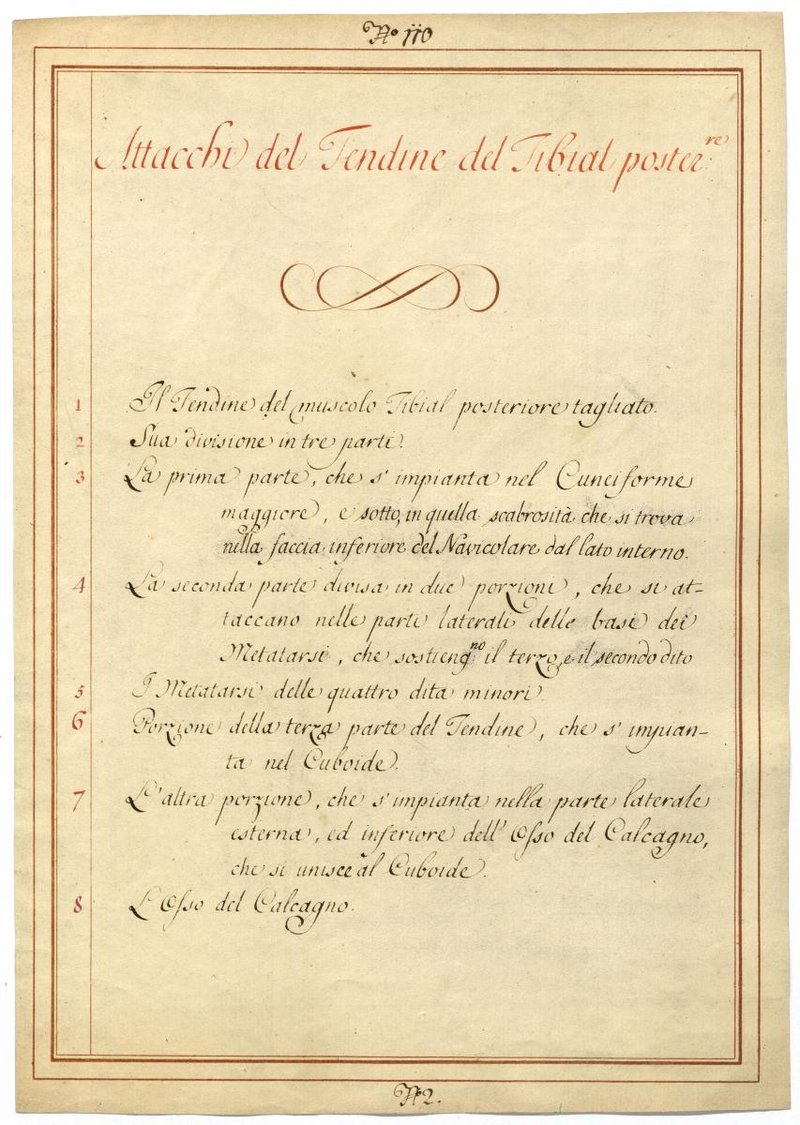 N.° 110
Attacchi del Tendine del Tibial poster.re
1 Il Tendine del muscolo Tibial posteriore tagliato.
2 Sua divisione in tre parti.
3 La prima parte, che s' impianta nel Cuneiforme
maggiore, e sotto, in quella scabrosità che si trova
nella faccia inferiore del Navicolare dal lato interno.
4 La seconda parte divisa in due porzioni, che si at-
taccano nelle parti laterali delle basi dei
Metatarsi, che sostengno il terzo, e il secondo dito
5 I Metatarsi delle quattro dita minori
6 Porzione della terza parte del Tendine, che s' impian-
ta nel Cuboide.
7 L'altra porzione, che s'impianta nella parte laterale
esterna, ed inferiore dell' Osso del Calcagno,
che si unisce al Cuboide.
8 L'Osso del Calcagno.
N.° 2.